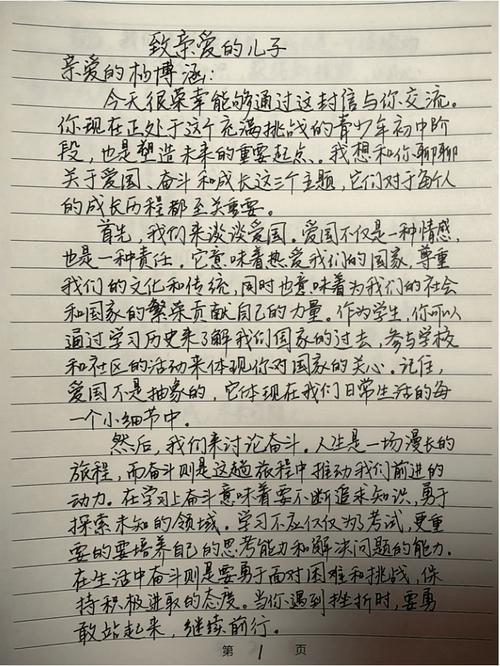 致亲爱的儿子
亲爱的杨博涵:
今天很荣幸能够通过这封信与你交流。
你现在正处于这个充满挑战的青少年初中阶
段,也是塑造未来的重要起点。我想和你聊聊
关于爱国、奋斗和成长这三个主题,它们对于每个人
的成长历程都至关重要。
首先,我们来谈谈爱国。爱国不仅是一种情感,
也是一种责任。它意味着热爱我们的国家,尊重
我们的文化和传统,同时也意味着为我们的社会
和国家的繁荣贡献自己的力量。作为学生,你可以
通过学习历史来了解我们国家的过去,参与学校
和社区的活动来体现你对国家的关心。记住,
爱国不是抽象的,它体现在我们日常生活的每
一个小细节中。
然后,我们来讨论奋斗。人生是一场漫长的
旅程,而奋斗则是这趟旅程中推动我们前进的
动力。在学习上奋斗意味着要不断追求知识,勇于
探索未知的领域。学习不应仅仅为了考试,更重
要的要培养自己的思考能力和解决问题的能力.
在生活中奋斗则是要勇于面对困难和挑战,保
持积极进取的态度。当你遇到挫折时,要勇
敢站起来,继续前行。
第 1 页